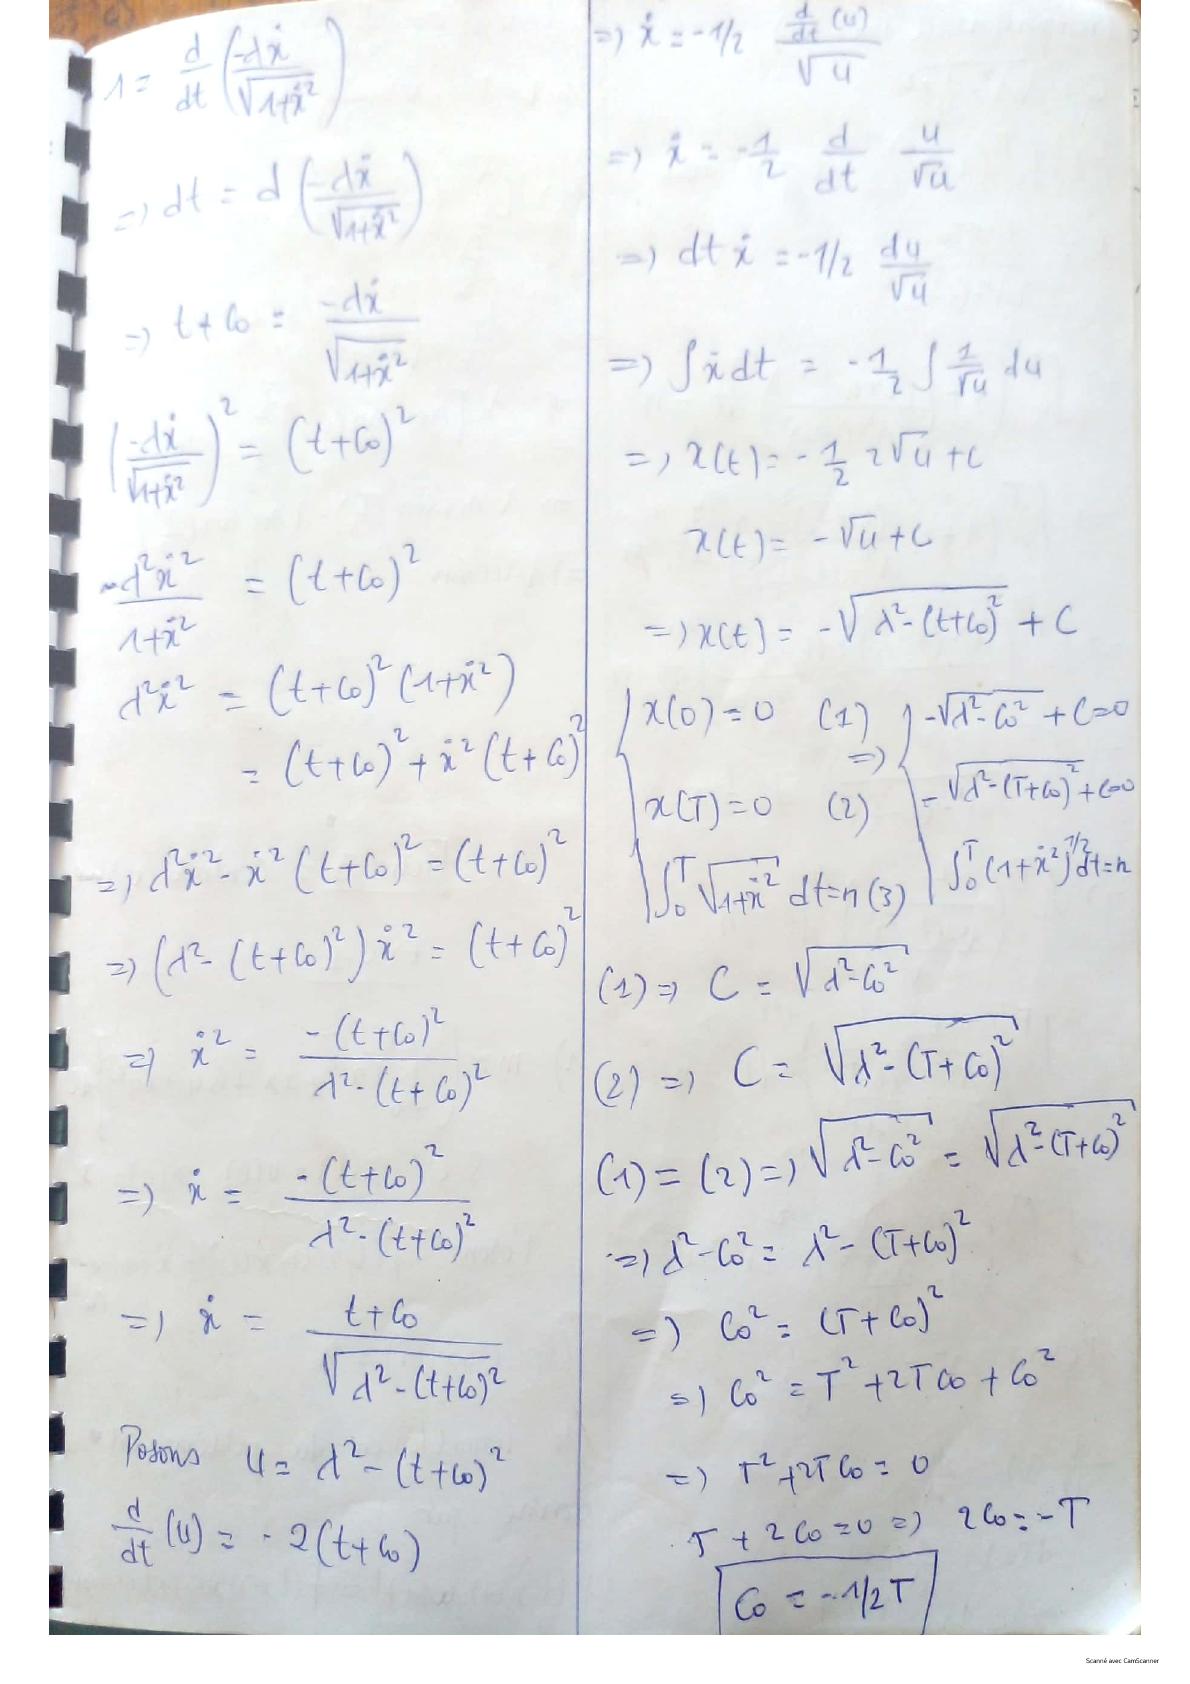 1 = d/dt (-λẋ/√(1+ẋ²))
=> dt = d (-λẋ/√(1+ẋ²))
=> t+C0 = -λẋ/√(1+ẋ²)
(-λẋ/√(1+ẋ²))² = (t+C0)²
-λ²ẋ²/(1+ẋ²) = (t+C0)²
λ²ẋ² = (t+C0)² (1+ẋ²)
= (t+C0)² + ẋ² (t+C0)²
=> λ²ẋ² - ẋ² (t+C0)² = (t+C0)²
=> (λ² - (t+C0)²) ẋ² = (t+C0)²
=> ẋ² = -(t+C0)²/(λ² - (t+C0)²)
=> ẋ = -(t+C0)²/(λ² - (t+C0)²)
=> ẋ = (t+C0)/√(λ² - (t+C0)²)
Posons u = λ² - (t+C0)²
d/dt (u) = - 2(t+C0)
=> ẋ = -1/2 d/dt (u)/√u
=> ẋ = -1/2 d/dt u/√u
=> dt ẋ = -1/2 du/√u
=> ∫ẋdt = -1/2 ∫ 1/√u du
=> x(t) = - 1/2 2√u + C
x(t) = - √u + C
=> x(t) = -√(λ² - (t+C0)²) + C
{ x(0) = 0 (1) => { -√(λ²-C0²) + C = 0
x(T) = 0 (2) -√(λ²-(T+C0)²) + C=0
∫₀ᵀ √(1+ẋ²) dt = n (3) ∫₀ᵀ (1+ẋ²)^1/2 dt = n
(1) => C = √(λ²-C0²)
(2) => C = √(λ² - (T+C0)²)
(1) = (2) => √(λ²-C0²) = √(λ²-(T+C0)²)
=> λ² - C0² = λ² - (T+C0)²
=> C0² = (T+C0)²
=> C0² = T² + 2TC0 + C0²
=> T² + 2TC0 = 0
T + 2C0 = 0 => 2C0 = -T
C0 = -1/2T
Scanné avec CamScanner